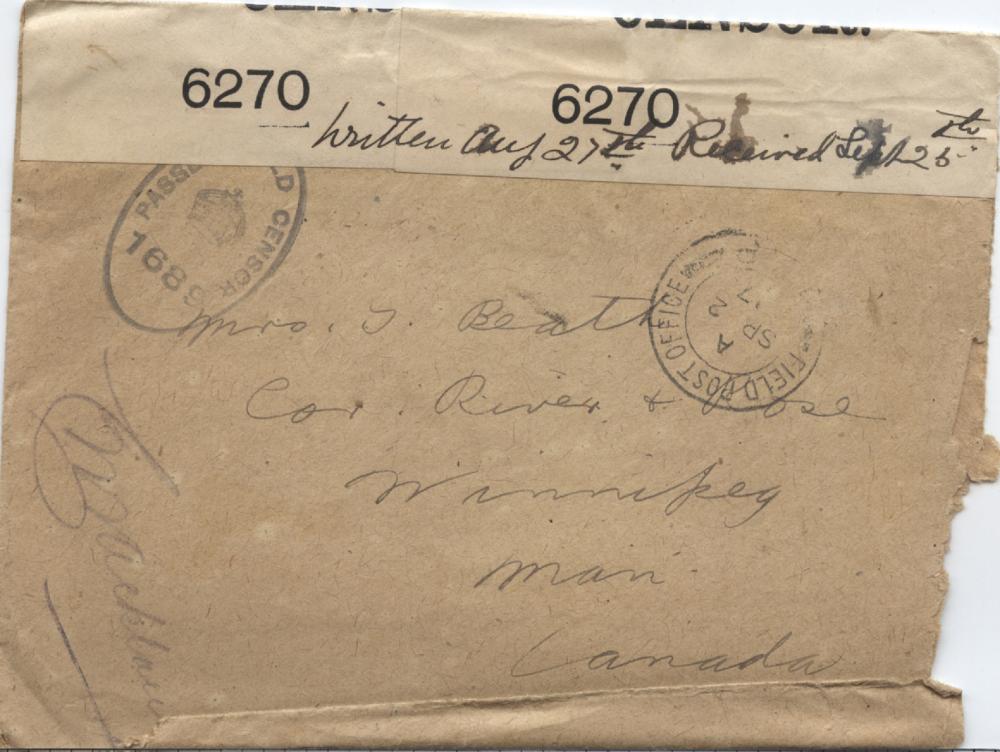 6270
6270
Written Aug 27th Received Sept 25th
PASSED FIELD CENSOR
168
FIELD POST OFFICE
A
SP 2
17
Mrs. J. Beath
Cor. River & Rose
Winnipeg
Man
Canada